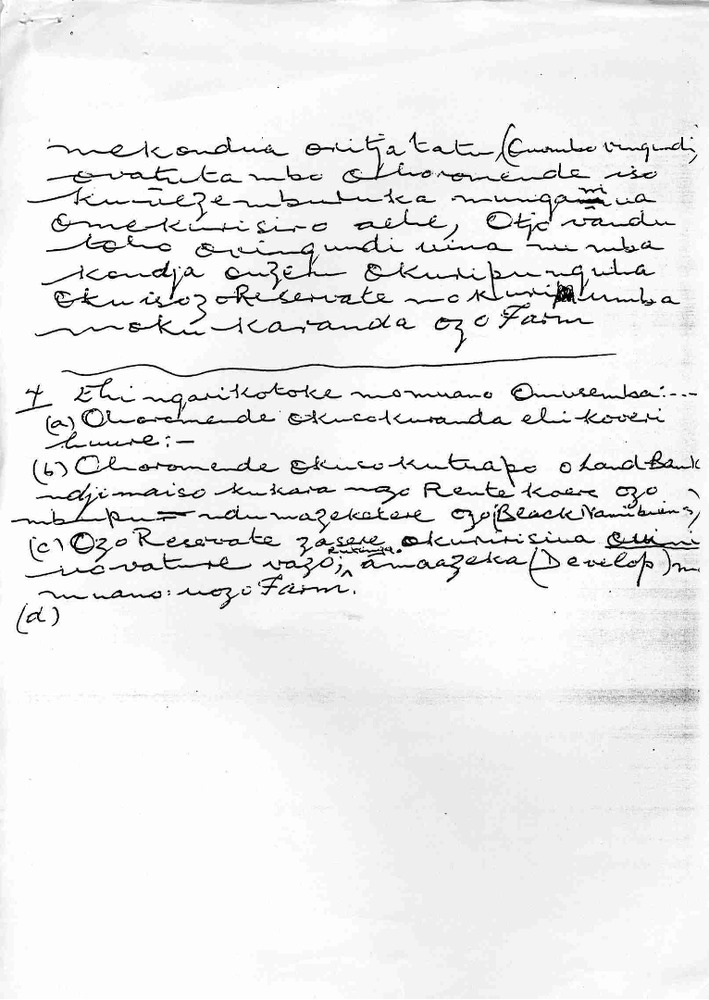 mekondua oritjatatu, (Cuombo vingundi,
ovatuta mbo Ohoromende iso
kuriezemburuka mungamua
omekurisiro aehe, Otjo vandu
toho ovingundi uina mu mba
kondja ouzeu Okuripunguha
Oku isozo Reservate nokuri umba
moku-karanda ozo Farm
4 Ehi ngarikotoke momuano Omusemba:---
(a) Ohoromende okusokuranda ehi-koveri
huure:-
(b) Ohoromende Okusokutuapo o Land-Bank
ndji maiso kukara nozo Rente koere ozo
mbupu = ndu mazeketere ozo (Black Namibians)
(c) Ozo Reservate zasere okuririsiua
novature vazo; amaazeka (Develop) m
muano uozo Farm.
(d)